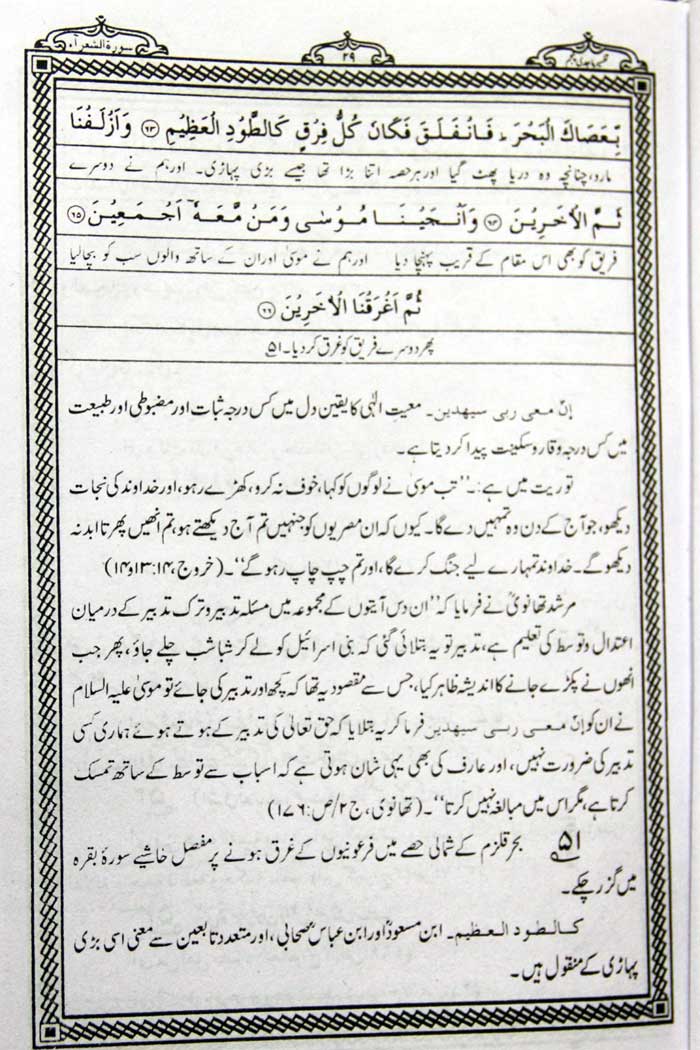 تفسیر ماجدی پنجم
۲۹
سورۃ الشعرآء
بِّعَصَاكَ الْبَحْرَ ؕ فَانْفَلَقَ فَكَانَ كُلُّ فِرْقٍ كَالطَّوْدِ الْعَظِيْمِ ﴿۶۳﴾ وَاَزْلَفْنَا
مارو، چنانچہ وہ دریا پھٹ گیا اور ہر حصہ اتنا بڑا تھا جیسے بڑی پہاڑی۔ اور ہم نے دوسرے
ثَمَّ الْاٰخَرِيْنَ ﴿۶۴﴾ وَاَنْجَيْنَا مُوْسٰى وَمَنْ مَّعَهٗۤ اَجْمَعِيْنَ ﴿۶۵﴾
فریق کو بھی اس مقام کے قریب پہنچا دیا اور ہم نے موسیٰ اور ان کے ساتھ والوں سب کو بچالیا
ثُمَّ اَغْرَقْنَا الْاٰخَرِيْنَ ﴿۶۶﴾
پھر دوسرے فریق کو غرق کر دیا۔ ۵۱
إنّ معی ربی سیهدین۔ معیتِ الٰہی کا یقین دل میں کس درجہ ثبات اور مضبوطی اور طبیعت
میں کس درجہ وقار و سکینت پیدا کر دیتا ہے۔
توریت میں ہے:۔ ”تب موسیٰ نے لوگوں کو کہا، خوف نہ کرو، کھڑے رہو، اور خداوند کی نجات
دیکھو، جو آج کے دن وہ تمہیں دے گا۔ کیوں کہ ان مصریوں کو جنہیں تم آج دیکھتے ہو، تم انھیں پھر تا ابد نہ
دیکھو گے۔ خداوند تمہارے لیے جنگ کرے گا، اور تم چپ چاپ رہو گے“۔ (خروج، ۱۴:۱۳و۱۴)
مرشد تھانویؒ نے فرمایا کہ ”ان دس آیتوں کے مجموعہ میں مسئلہ تدبیر و ترک تدبیر کے درمیان
اعتدال و توسط کی تعلیم ہے، تدبیر تو یہ بتلائی گئی کہ بنی اسرائیل کو لے کر شباشب چلے جاؤ، پھر جب
انھوں نے پکڑے جانے کا اندیشہ ظاہر کیا، جس سے مقصود یہ تھا کہ کچھ اور تدبیر کی جائے تو موسیٰ علیہ السلام
نے ان کو إنّ معی ربی سیهدین فرما کر یہ بتلایا کہ حق تعالیٰ کی تدبیر کے ہوتے ہوئے ہماری کسی
تدبیر کی ضرورت نہیں، اور عارف کی بھی یہی شان ہوتی ہے کہ اسباب سے توسط کے ساتھ تمسک
کرتا ہے، مگر اس میں مبالغہ نہیں کرتا“۔ (تھانوی، ج۲/ص:۱۷۶)
۵۱ بحر قلزم کے شمالی حصے میں فرعونیوں کے غرق ہونے پر مفصل حاشیے سورۂ بقرہ
میں گزر چکے۔
کالطود العظیم۔ ابن مسعودؓ اور ابن عباسؓ صحابی، اور متعدد تابعین سے معنی اسی بڑی
پہاڑی کے منقول ہیں۔